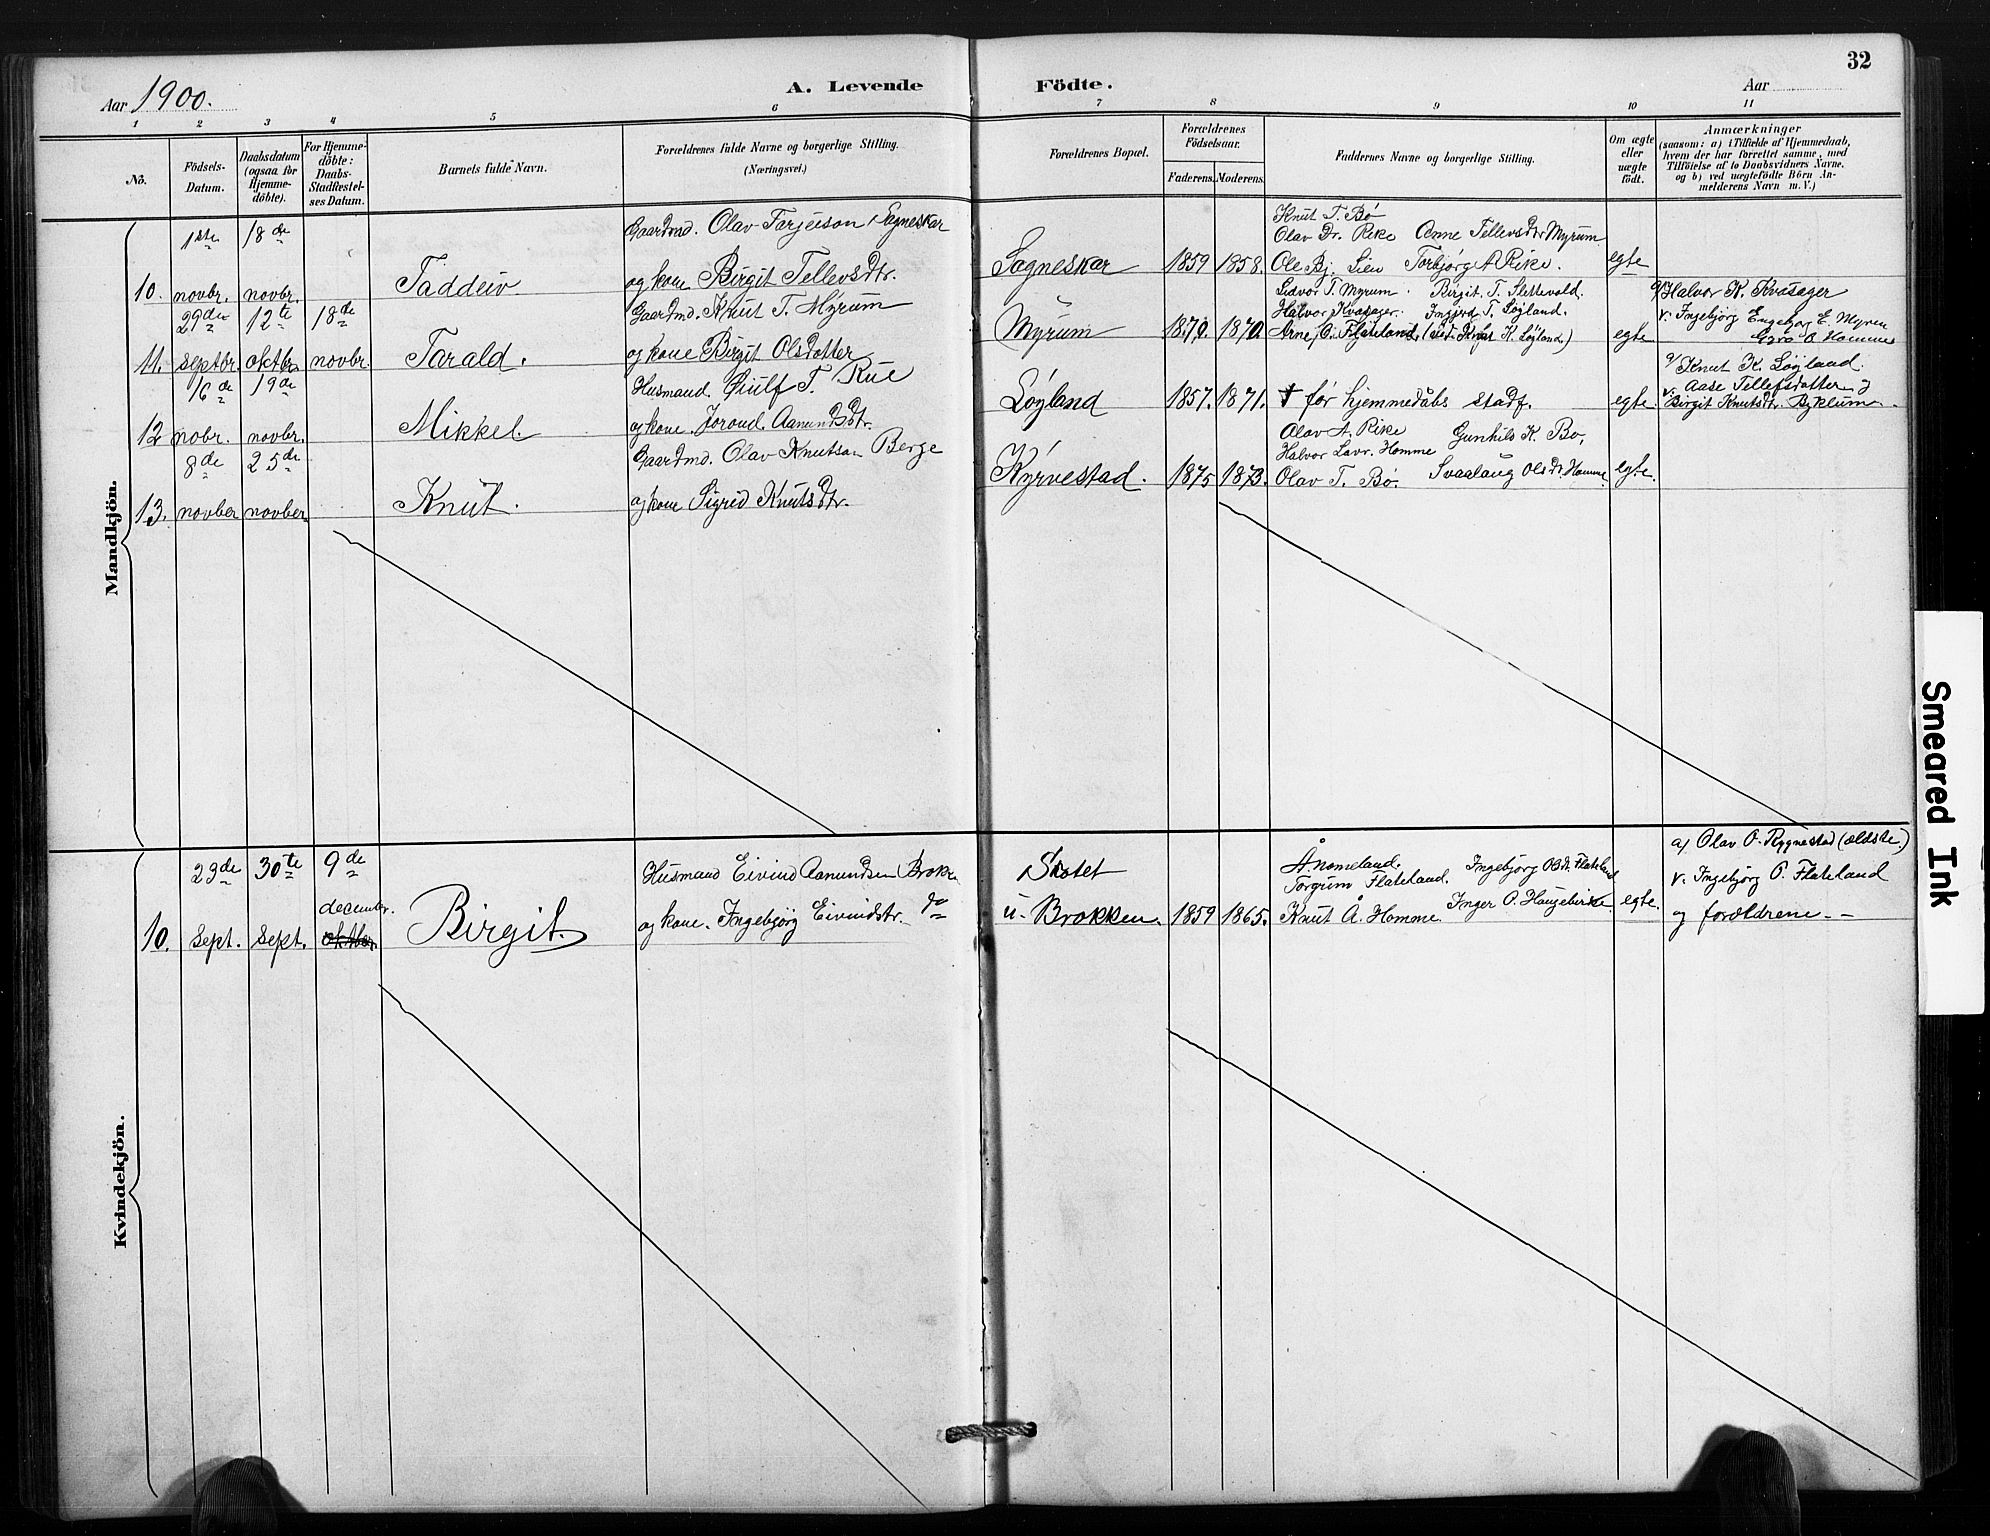 32
Aar 1900.
A. Levende Födte.
Aar
1 2 3 4 5 6 7 8 9 10 11
No.
Födsels-Datum.
Daabsdatum (ogsaa for Hjemme-döbte).
For Hjemme-döbte: Daabs-Stadfæstel-ses Datum.
Barnets fulde Navn.
Forældrenes fulde Navne og borgerlige Stilling.
(Næringsvei.)
Forældrenes Bopæl.
Forældrenes Födselsaar.
Faderens. Moderens.
Faddernes Navne og borgerlige Stilling.
Om ægte eller uægte födt.
Anmærkninger
(saasom: a) i Tilfælde af Hjemmedaab, hvem der har forrettet samme, med Tilföielse af to Daabsvidners Navne, og b) ved uægtefödte Börn An-melderens Navn m. V.)
Mandkjön.
10. 1ste novbr. 18de novbr.
Taddeiv
Gaardmd. Olav Tarjeison Sagneskar
og kone Birgit Tellevsdtr.
Sagneskar 1859 1858.
Knut T. Bø
Olav Dr. Rike Anne Tellevsdtr Myrum
Ole Bj. Lien Torbjørg A Rike.
egte
11. 29de septbr. 12te oktbr. 18de novbr.
Tarald.
Gaardmd. Knut T. Myrum
og kone Birgit Olsdotter
Myrum 1870. 1870.
Lidvor T. Myrum. Birgit T. Slettevold.
Halvor Kvasager. Ingjerd T. Løyland.
Arne O. Flateland. K. Løyland)
egte
Halvor K. Kvasager
v. Ingebjørg E. Myren
O. Homme
12 16de nobr. 19de novbr.
Mikkel.
Husmand. T. Rue
og kone Joroud. Aamundsdtr.
Løyland 1857. 1871.
† før hjemmedåbs stadf.
egte.
Knut K. Løyland.
v. Aase Tellefsdatter og
Birgit Knutsdtr. Byklum.
13. 8de novber 25de novber
Knut.
Gaardmd. Olav Knutson Berge
og kone Sigrid Knutsdtr.
Kyrvestad. 1875 1873.
Olav A. Rike Gunhild K. Bo,
Halvor Lavr. Homme
Olav T. Bø. Svaalaug Olsdtr Homme.
egte.
Kvindekjön.
10. 23de sept. 30te sept. 9de decembr. oktbr.
Birgit.
Husmand Eivind Aamundsen Brokke
og kone. Ingebjørg Eivindstr. do
Slotet
u. Brokken. 1859 1865.
Å. nomeland. Ingebjørg Olsdt. Flateland
Torgrim Flateland.
Knut Å. Homme Inger O. Haugebirke
egte.
a/ Olav O. Rygnestad (ældste.)
v. Ingebjørg O. Flateland
og forældrene.
Smeared Ink